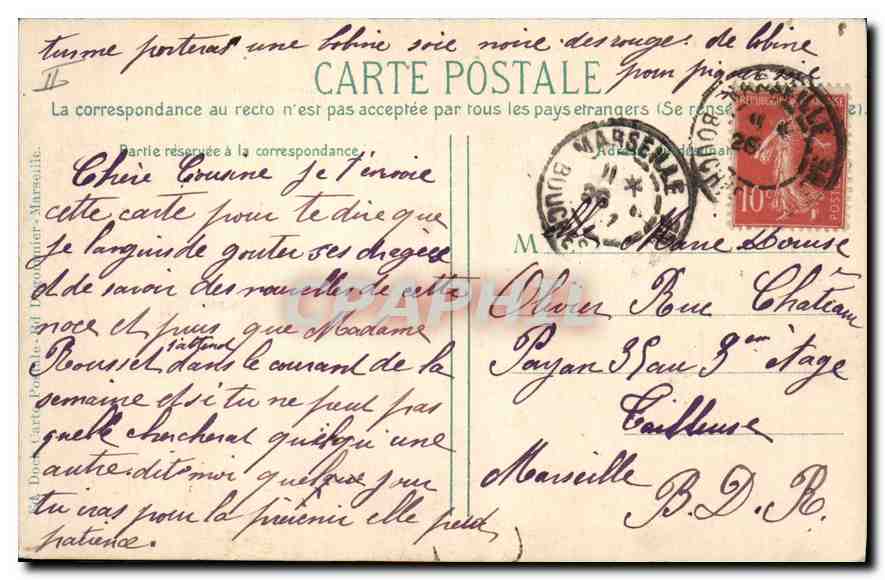 tu me porteras une bobine soie noire des rouge. de bobine
pour piquer
II
CARTE POSTALE
La correspondance au recto n'est pas acceptée par tous les pays étrangers (Se rense
Partie réservée à la correspondance
Chère Cousine je t'envoie
cette carte pour te dire que
je languis de gouter ses dragées
et de savoir des nouvelles de cette
noce et puis que Madame
Rousset s'attend dans le courant de la
semaine et si tu ne peut pas
quelle chercherat quelqu'une
autre. dit moi quelque jour
tu iras pour la prévenir elle perd
patience.
MARSEILLE
BOUCHES
11
26
MARSEILLE
BOUCHES
11
26
10c
POSTES
M
Marie Louise
Olivier Rue Château
Payan 35 au 3em étage
Tailleuse
Marseille
B. D. R.
CPAPHIL
Marseille.